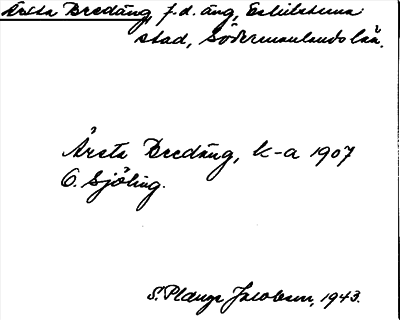 Årsta Bredäng, f.d. äng, Eskilstuna
stad, Södermanlands län.
Årsta Bredäng, k-a 1907
O. Sjöling.
S. Plange Jacobson, 1943.